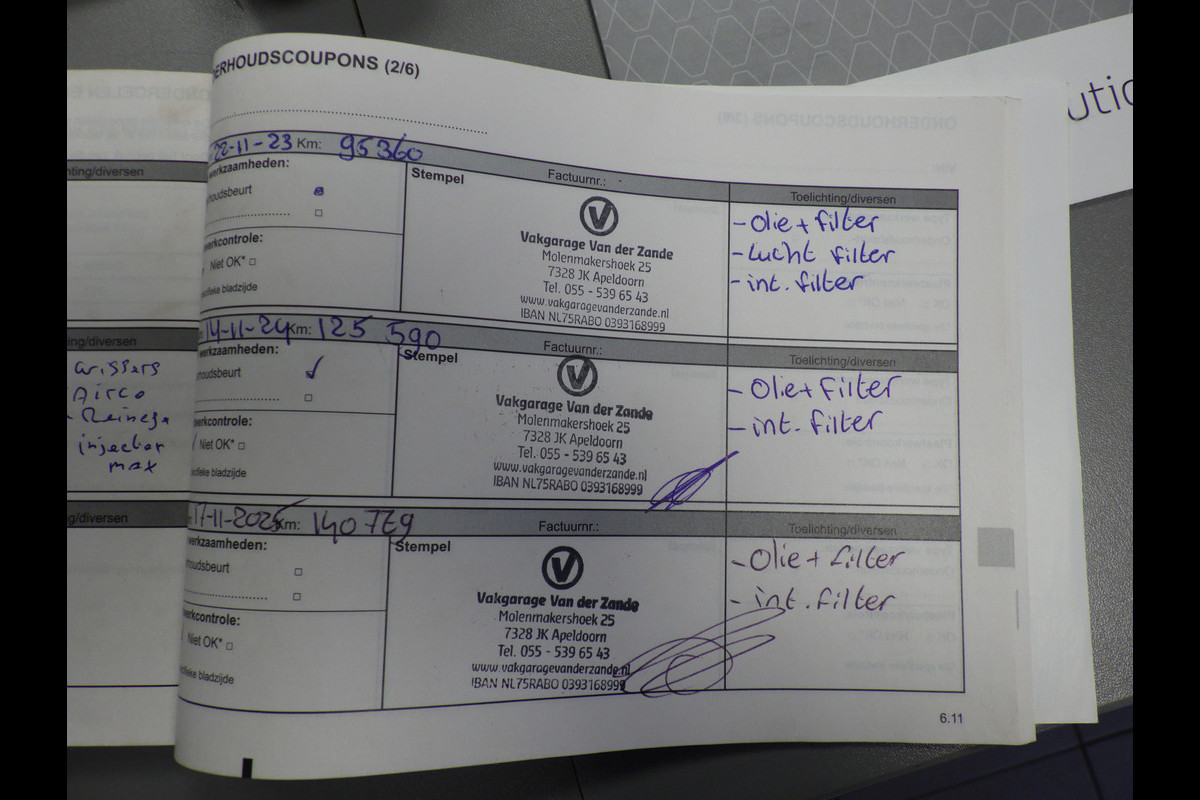 ERHOUDSCOUPONS (2/6)
22-11-23 Km: 95360
werkzaamheden:
houdsbeurt
werkcontrole:
Niet OK*
ecifieke bladzijde
Stempel
Factuurnr.:
Vakgarage Van der Zande
Molenmakershoek 25
7328 JK Apeldoorn
Tel. 055 - 539 65 43
www.vakgaragevanderzande.nl
IBAN NL75RABO 0393168999
Toelichting/diversen
- Olie + filter
- Lucht filter
- int. filter
14-11-24 Km: 125 590
werkzaamheden:
houdsbeurt
werkcontrole:
Niet OK*
ecifieke bladzijde
Stempel
Factuurnr.:
Vakgarage Van der Zande
Molenmakershoek 25
7328 JK Apeldoorn
Tel. 055 - 539 65 43
www.vakgaragevanderzande.nl
IBAN NL75RABO 0393168999
Toelichting/diversen
- Olie + filter
- int. filter
17-11-2025 Km: 140 769
werkzaamheden:
houdsbeurt
werkcontrole:
Niet OK*
ecifieke bladzijde
Stempel
Factuurnr.:
Vakgarage Van der Zande
Molenmakershoek 25
7328 JK Apeldoorn
Tel. 055 - 539 65 43
www.vakgaragevanderzande.nl
IBAN NL75RABO 0393168999
Toelichting/diversen
- Olie + filter
- int. filter
6.11
hting/diversen
ing/diversen
wissers
Airco
injector
max
g/diversen
utio